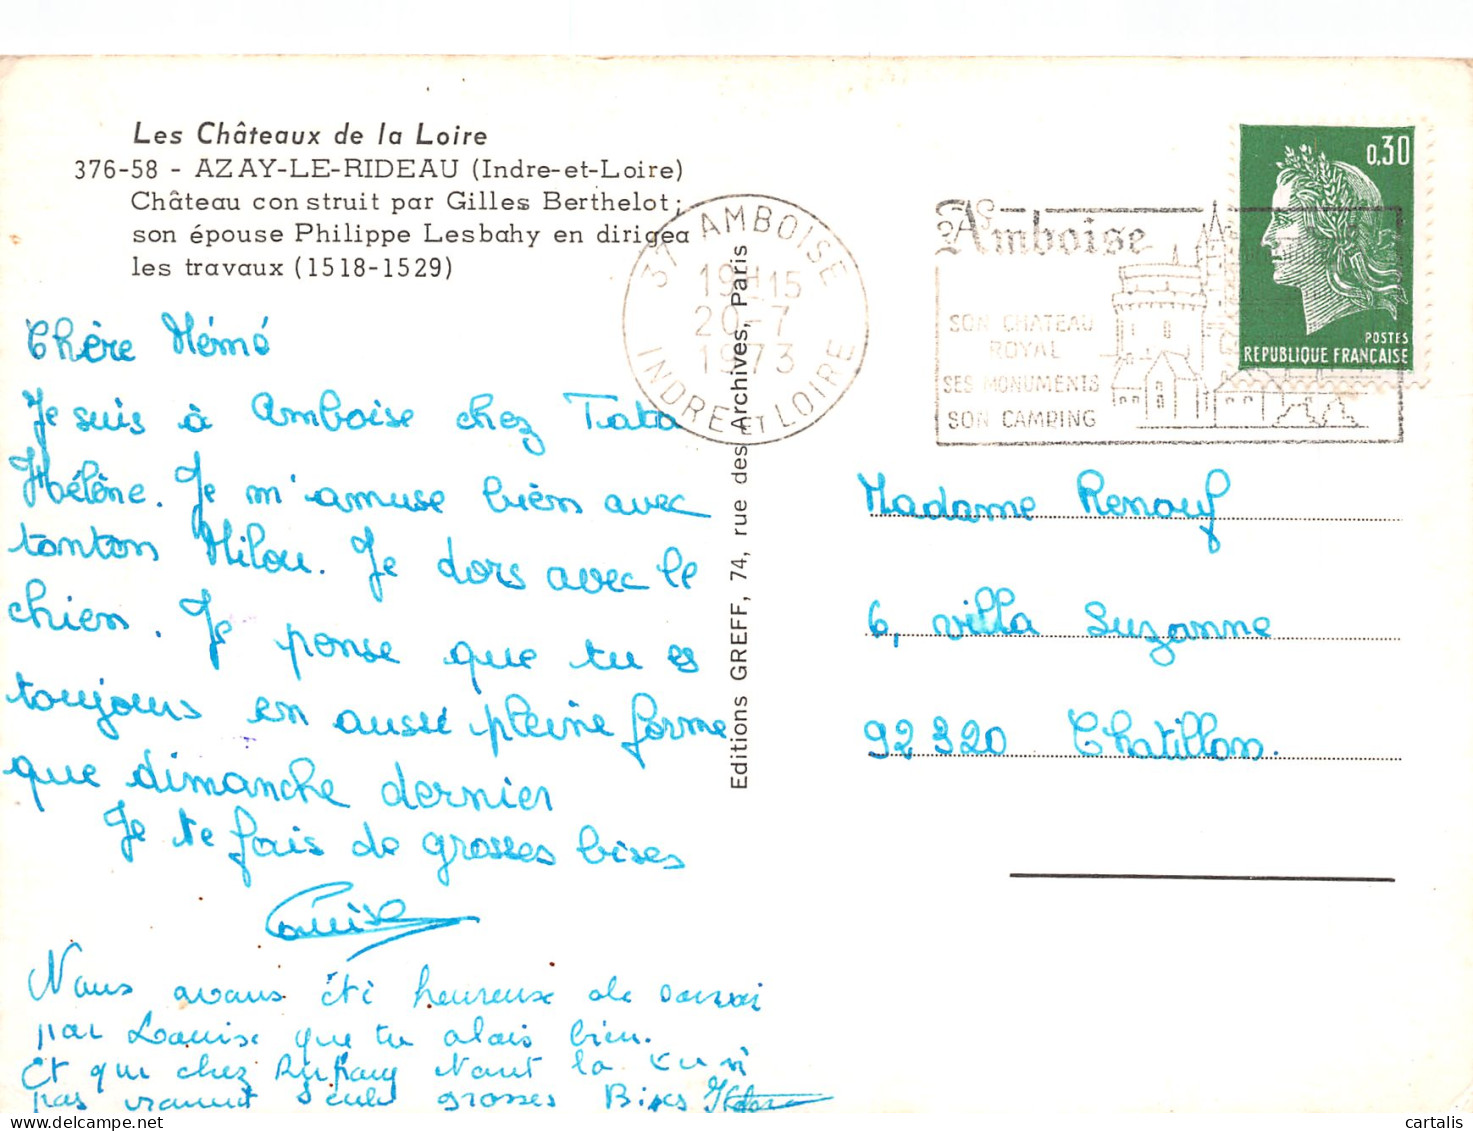 Les Châteaux de la Loire
376-58 - AZAY-LE-RIDEAU (Indre-et-Loire)
Château construit par Gilles Berthelot;
son épouse Philippe Lesbahy en dirigea
les travaux (1518-1529)
Chère Mémé
Je suis à Amboise chez Tata
Hélène. Je m'amuse bien avec
tonton Milou. Je dors avec le
chien. Je pense que tu es
toujours en aussi pleine forme
que dimanche dernier
Je te fais de grosses bises
Louise
Nous avons été heureuse de savoir
par Louise que tu alais bien.
Et que chez
pas vraiment grosses Bises
Editions GREFF, 74, rue des Archives, Paris
37 AMBOISE
19H15
20-7
1973
INDRE ET LOIRE
Amboise
SON CHATEAU
ROYAL
SES MONUMENTS
SON CAMPING
0,30
POSTES
REPUBLIQUE FRANCAISE
Madame Renouf
6, villa Suzanne
92320 Chatillon.
cartalis